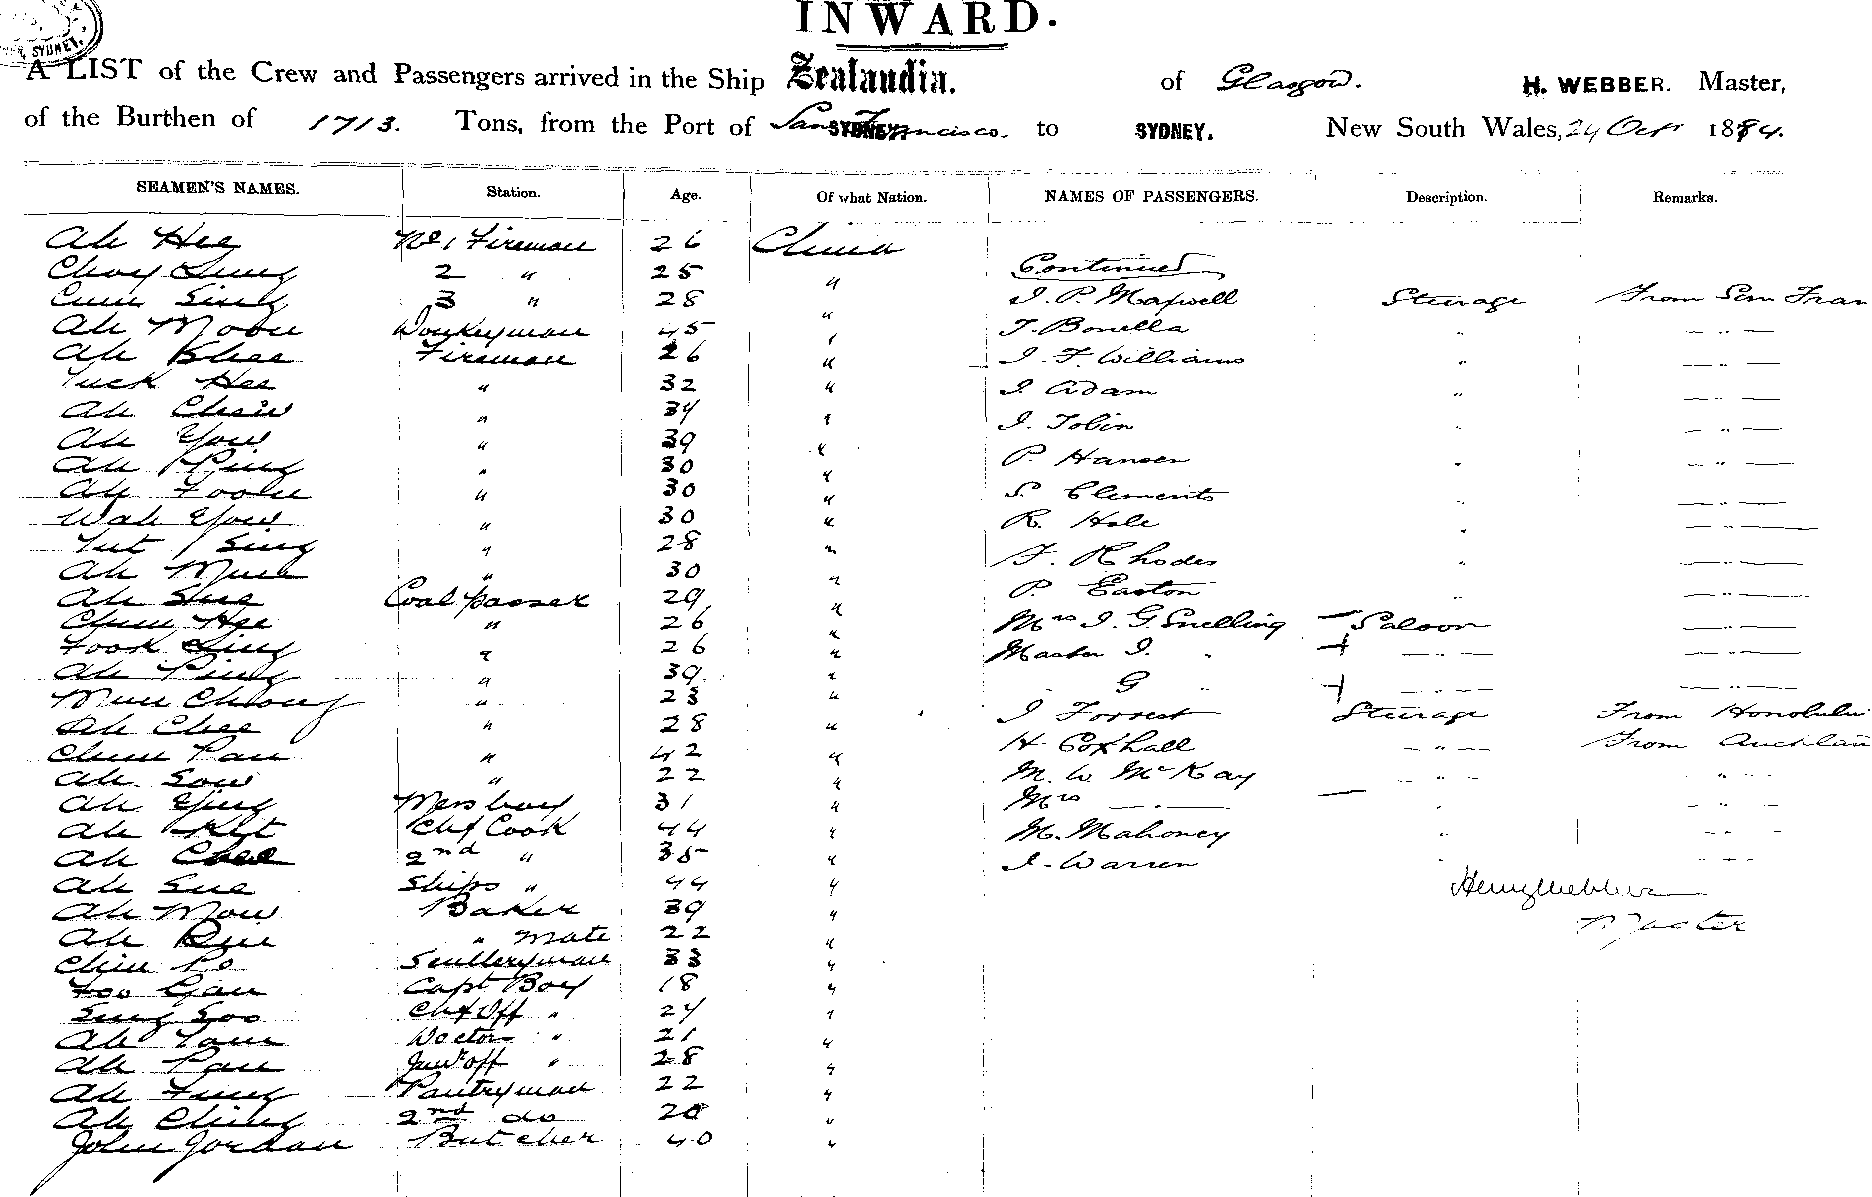 SYDNEY.
INWARD.
A LIST of the Crew and Passengers arrived in the Ship Zealandia. of Glasgow. H. WEBBER. Master,
of the Burthen of 1713. Tons, from the Port of San Francisco. to SYDNEY. New South Wales, 24 Oct 1884.
SEAMEN'S NAMES. Station. Age. Of what Nation. NAMES OF PASSENGERS. Description. Remarks.
Ah Hee No. 1 Fireman 26 China
Choy 2 " 25 " Continued
Sing 3 " 28 " J. P. Maxwell Steerage From San Fran
Ah Moon Donkeyman 45 " T. Bonella " — " —
Ah Fireman 26 " J. F. Williams " — " —
Tuck Hee " 32 " J Adam " — " —
Ah " 34 " J. Tobin " — " —
Ah You " 39 "
Ah Ping " 30 " P. Hansen " — " —
Ah " 30 " S. Clements " — " —
Wah You " 30 " R. Hale " — " —
Sing " 28 " F. Rhodes " — " —
Ah " 30 "
Ah Sue Coal passer 29 " P. Easton " — " —
Hee " 26 " Mrs J. G Snelling — Saloon — " —
Fook " 26 " Master J. " — " — — " —
Ah Ping " 39 " " G " — " — — " —
Mun Chong " 23 "
Ah Chee " 28 " J Forrest Steerage From Honolulu
Chun Pan " 42 " H. Coxhall — " — From Auckland
Ah Sow " 22 " M. W McKay — " — " —
Ah Ying Messboy 31 " Mrs — " — " — " —
Ah Kit Chf Cook 44 " M. Mahoney " — " —
Ah Chee 2nd " 35 " J. Warren " — " —
Ah Sue Ships " 44 " Henry Webber
Ah Mow Baker 39 "
Ah " Mate 22 " Master
Chin Po Scullery man 33 "
Foo Capt Boy 18 "
Sung Soo Chf Off " 24 "
Ah Doctor " 21 "
Ah Pan Junr off " 28 "
Ah Fung Pantryman 22 "
Ah Ching 2nd do 20 "
John Jordan Butcher 40 "